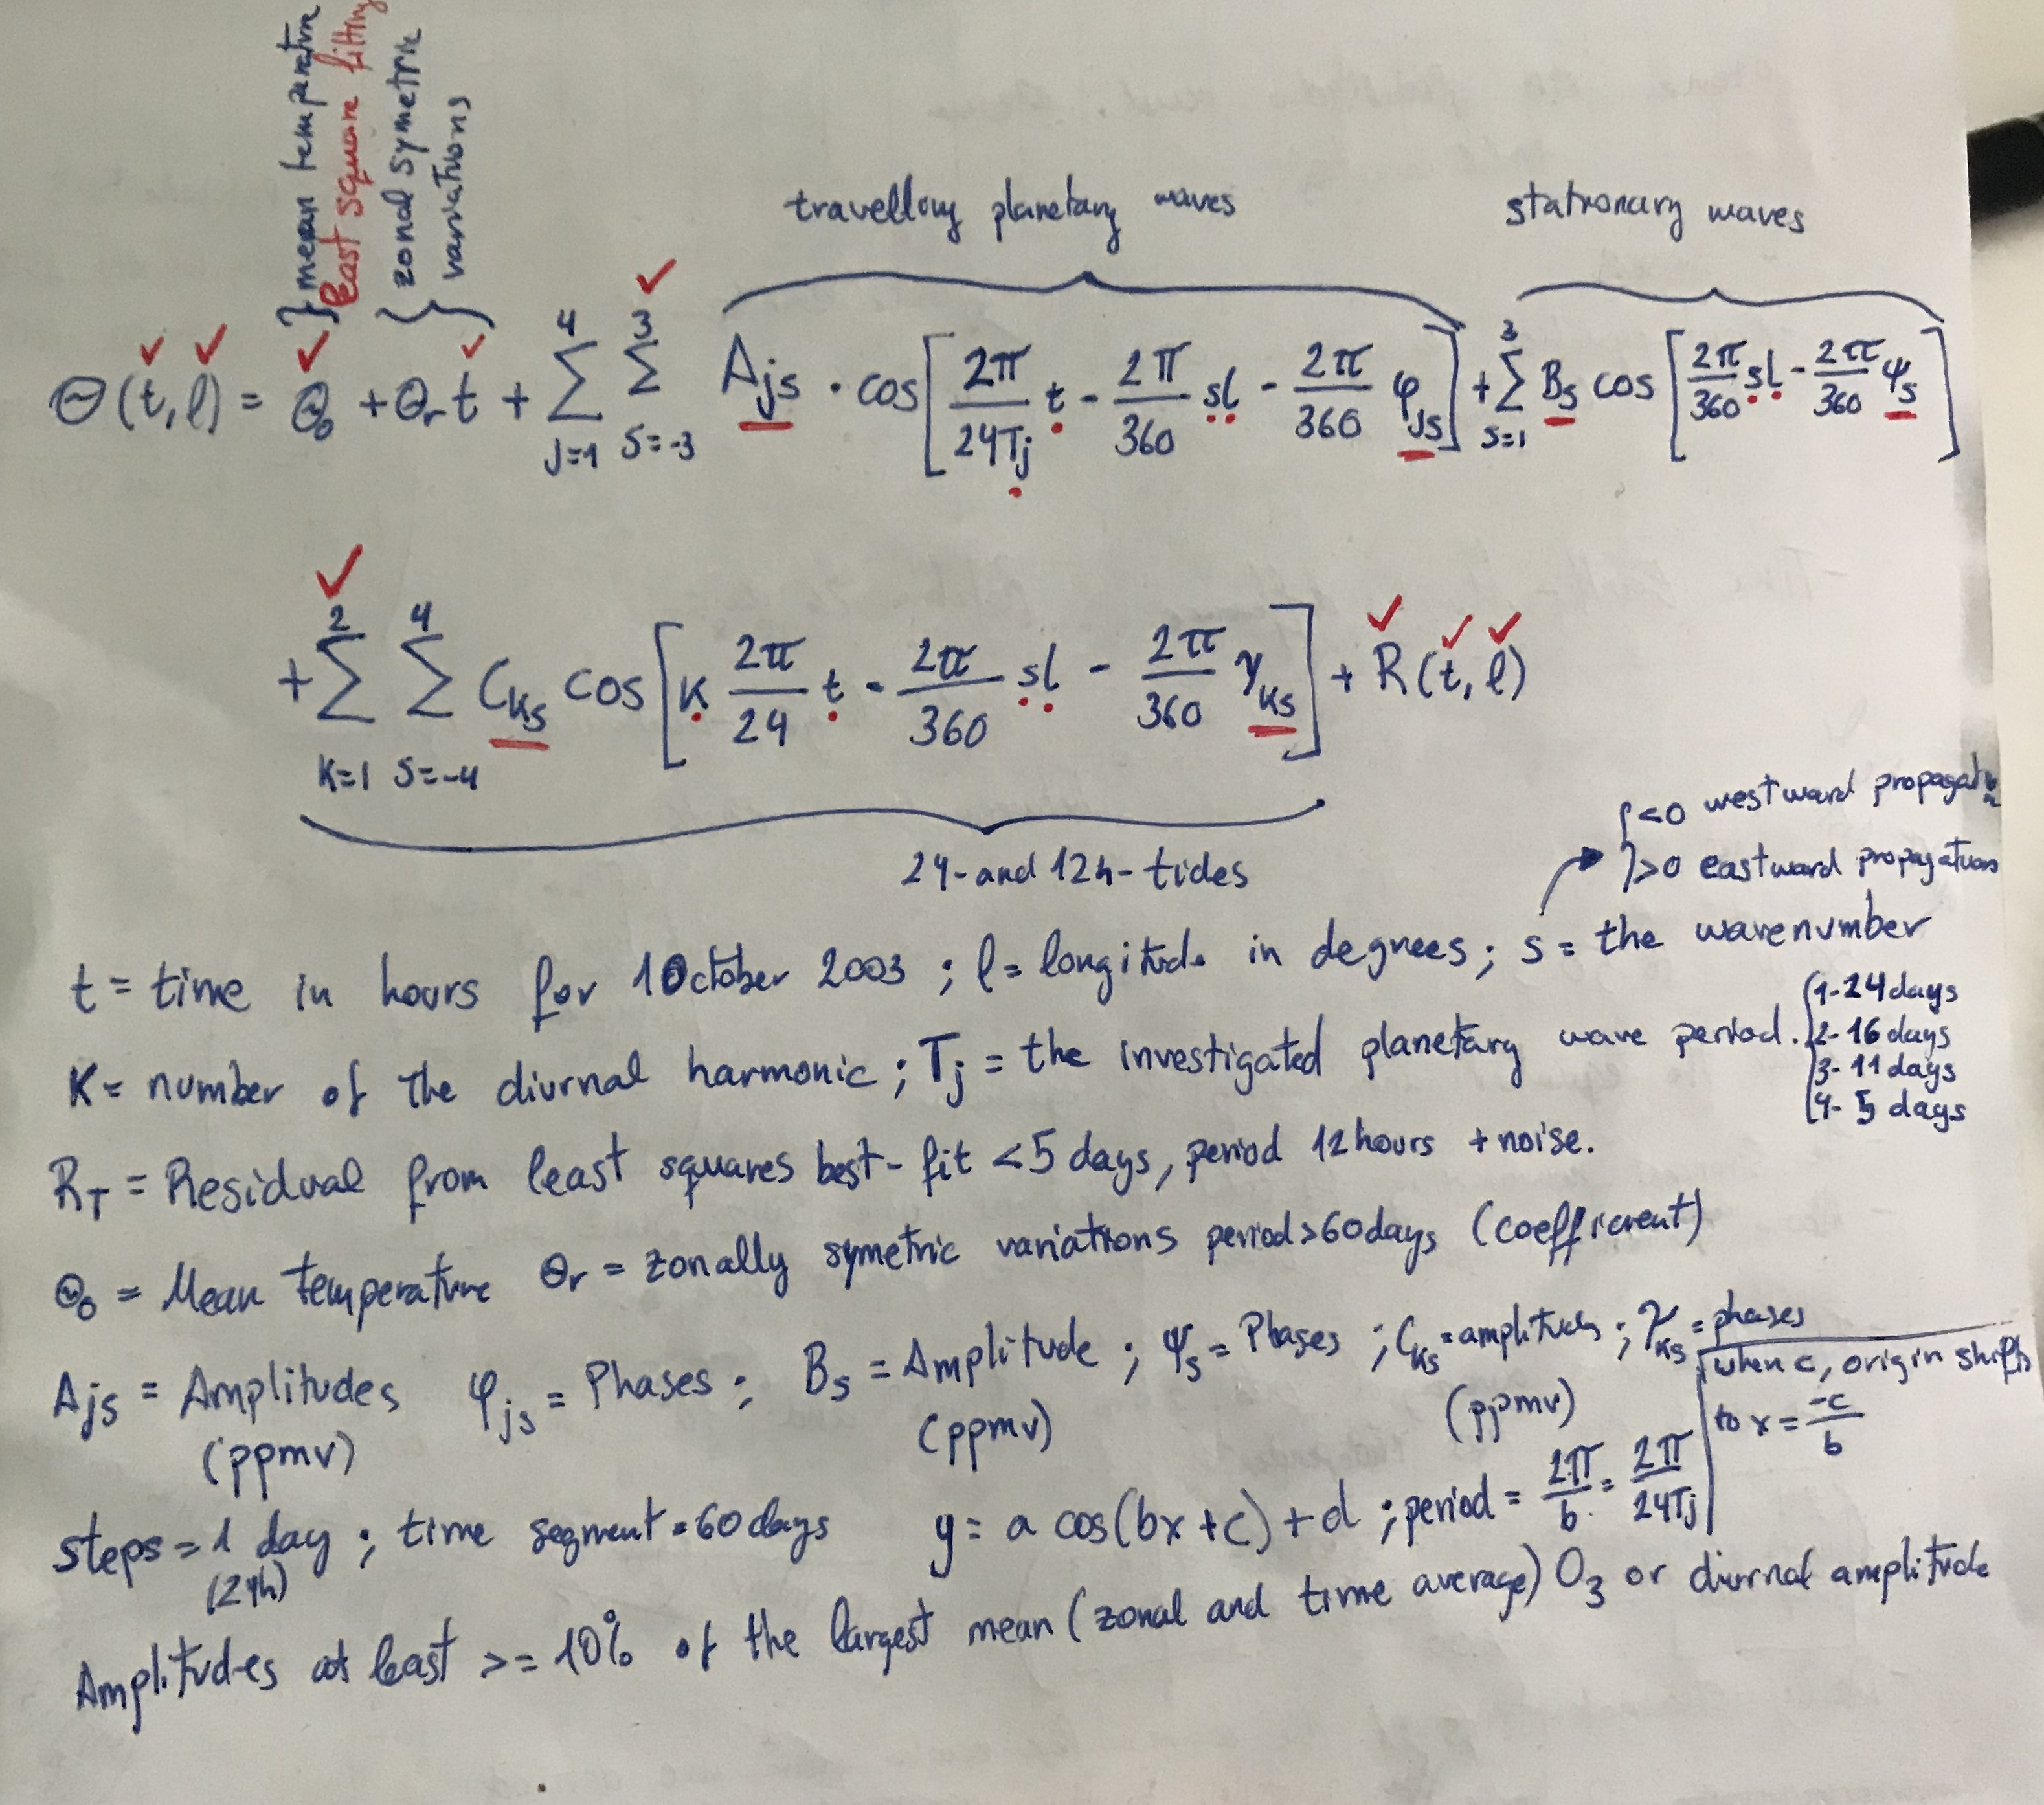 mean temperature
least square fitting
zonal symetric
variations
travelling planetary waves
stationary waves
Θ(t,l) = Θ₀ + Θr t + ∑_{J=1}^{4} ∑_{S=-3}^{3} A_js · cos[2π/24Tj t - 2π/360 sl - 2π/360 φ_js] + ∑_{S=1}^{3} B_s cos[2π/360 sl - 2π/360 ψ_s]
+ ∑_{K=1}^{2} ∑_{S=-4}^{4} C_ks cos[K 2π/24 t - 2π/360 sl - 2π/360 γ_ks] + R(t,l)
24-and 12h-tides
<0 westward propagation
>0 eastward propagations
t = time in hours for 1 October 2003 ; l = longitude in degrees ; s = the wavenumber
K = number of the diurnal harmonic ; Tj = the investigated planetary wave period.
1-24 days
2-16 days
3-11 days
4- 5 days
R_T = Residual from least squares best-fit <5 days, period 12 hours + noise.
Θ₀ = Mean temperature Θr = zonally symetric variations period>60days (coefficient)
A_js = Amplitudes φ_js = Phases ; B_s = Amplitude ; ψ_s = Phases ; C_ks = amplitudes ; γ_ks = phases
(ppmv) (ppmv) (ppmv)
when c, origin shifts
to x = -c/b
steps = 1 day ; time segment = 60 days y = a cos(bx+c)+d ; period = 2π/b = 2π/24Tj
(24h)
Amplitudes at least >= 10% of the largest mean (zonal and time average) O₃ or diurnal amplitude